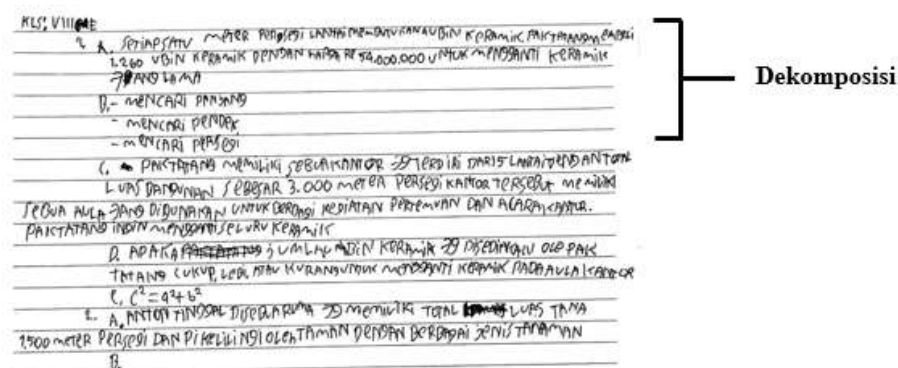 KLS: VIII E
1. A. SETIAP SATU METER PERSEGI LANTAI MEMBUTUKAN UBIN KERAMIK. PAK TATANG MEMBELI
1.260 UBIN KERAMIK DENGAN HARGA RP 54.000.000 UNTUK MENGGANTI KERAMIK
YANG LAMA
B. - MENCARI PANJANG
- MENCARI PENDEK
- MENCARI PERSEGI
C. PAK TATANG MEMILIKI SEBUA KANTOR YG TERDIRI DARI 5 LANTAI DENGAN TOTAL
LUAS BANGUNAN SEBESAR 3.000 METER PERSEGI KANTOR TERSEBUT MEMILIKI
SEBUA AULA YANG DIGUNAKAN UNTUK BERBAGI KEGIATAN PERTEMUAN DAN ACARA KANTOR.
PAK TATANG INGIN MENGGANTI SELURU KERAMIK
D. APAKA JUMLAH UBIN KERAMIK YG DISEDIAKAN OLE PAK
TATANG CUKUP, LEBI, ATAU KURANG UNTUK MENGGANTI KERAMIK PADA AULA KANTOR
E. C² = a² + b²
2. A. ANTON TINGGAL DISEBUA RUMA YG MEMILIKI TOTAL LUAS TANA
1500 METER PERSEGI DAN DI KELILINGI OLEH TAMAN DENGAN BERBAGAI JENIS TANAMAN
B.
Dekomposisi